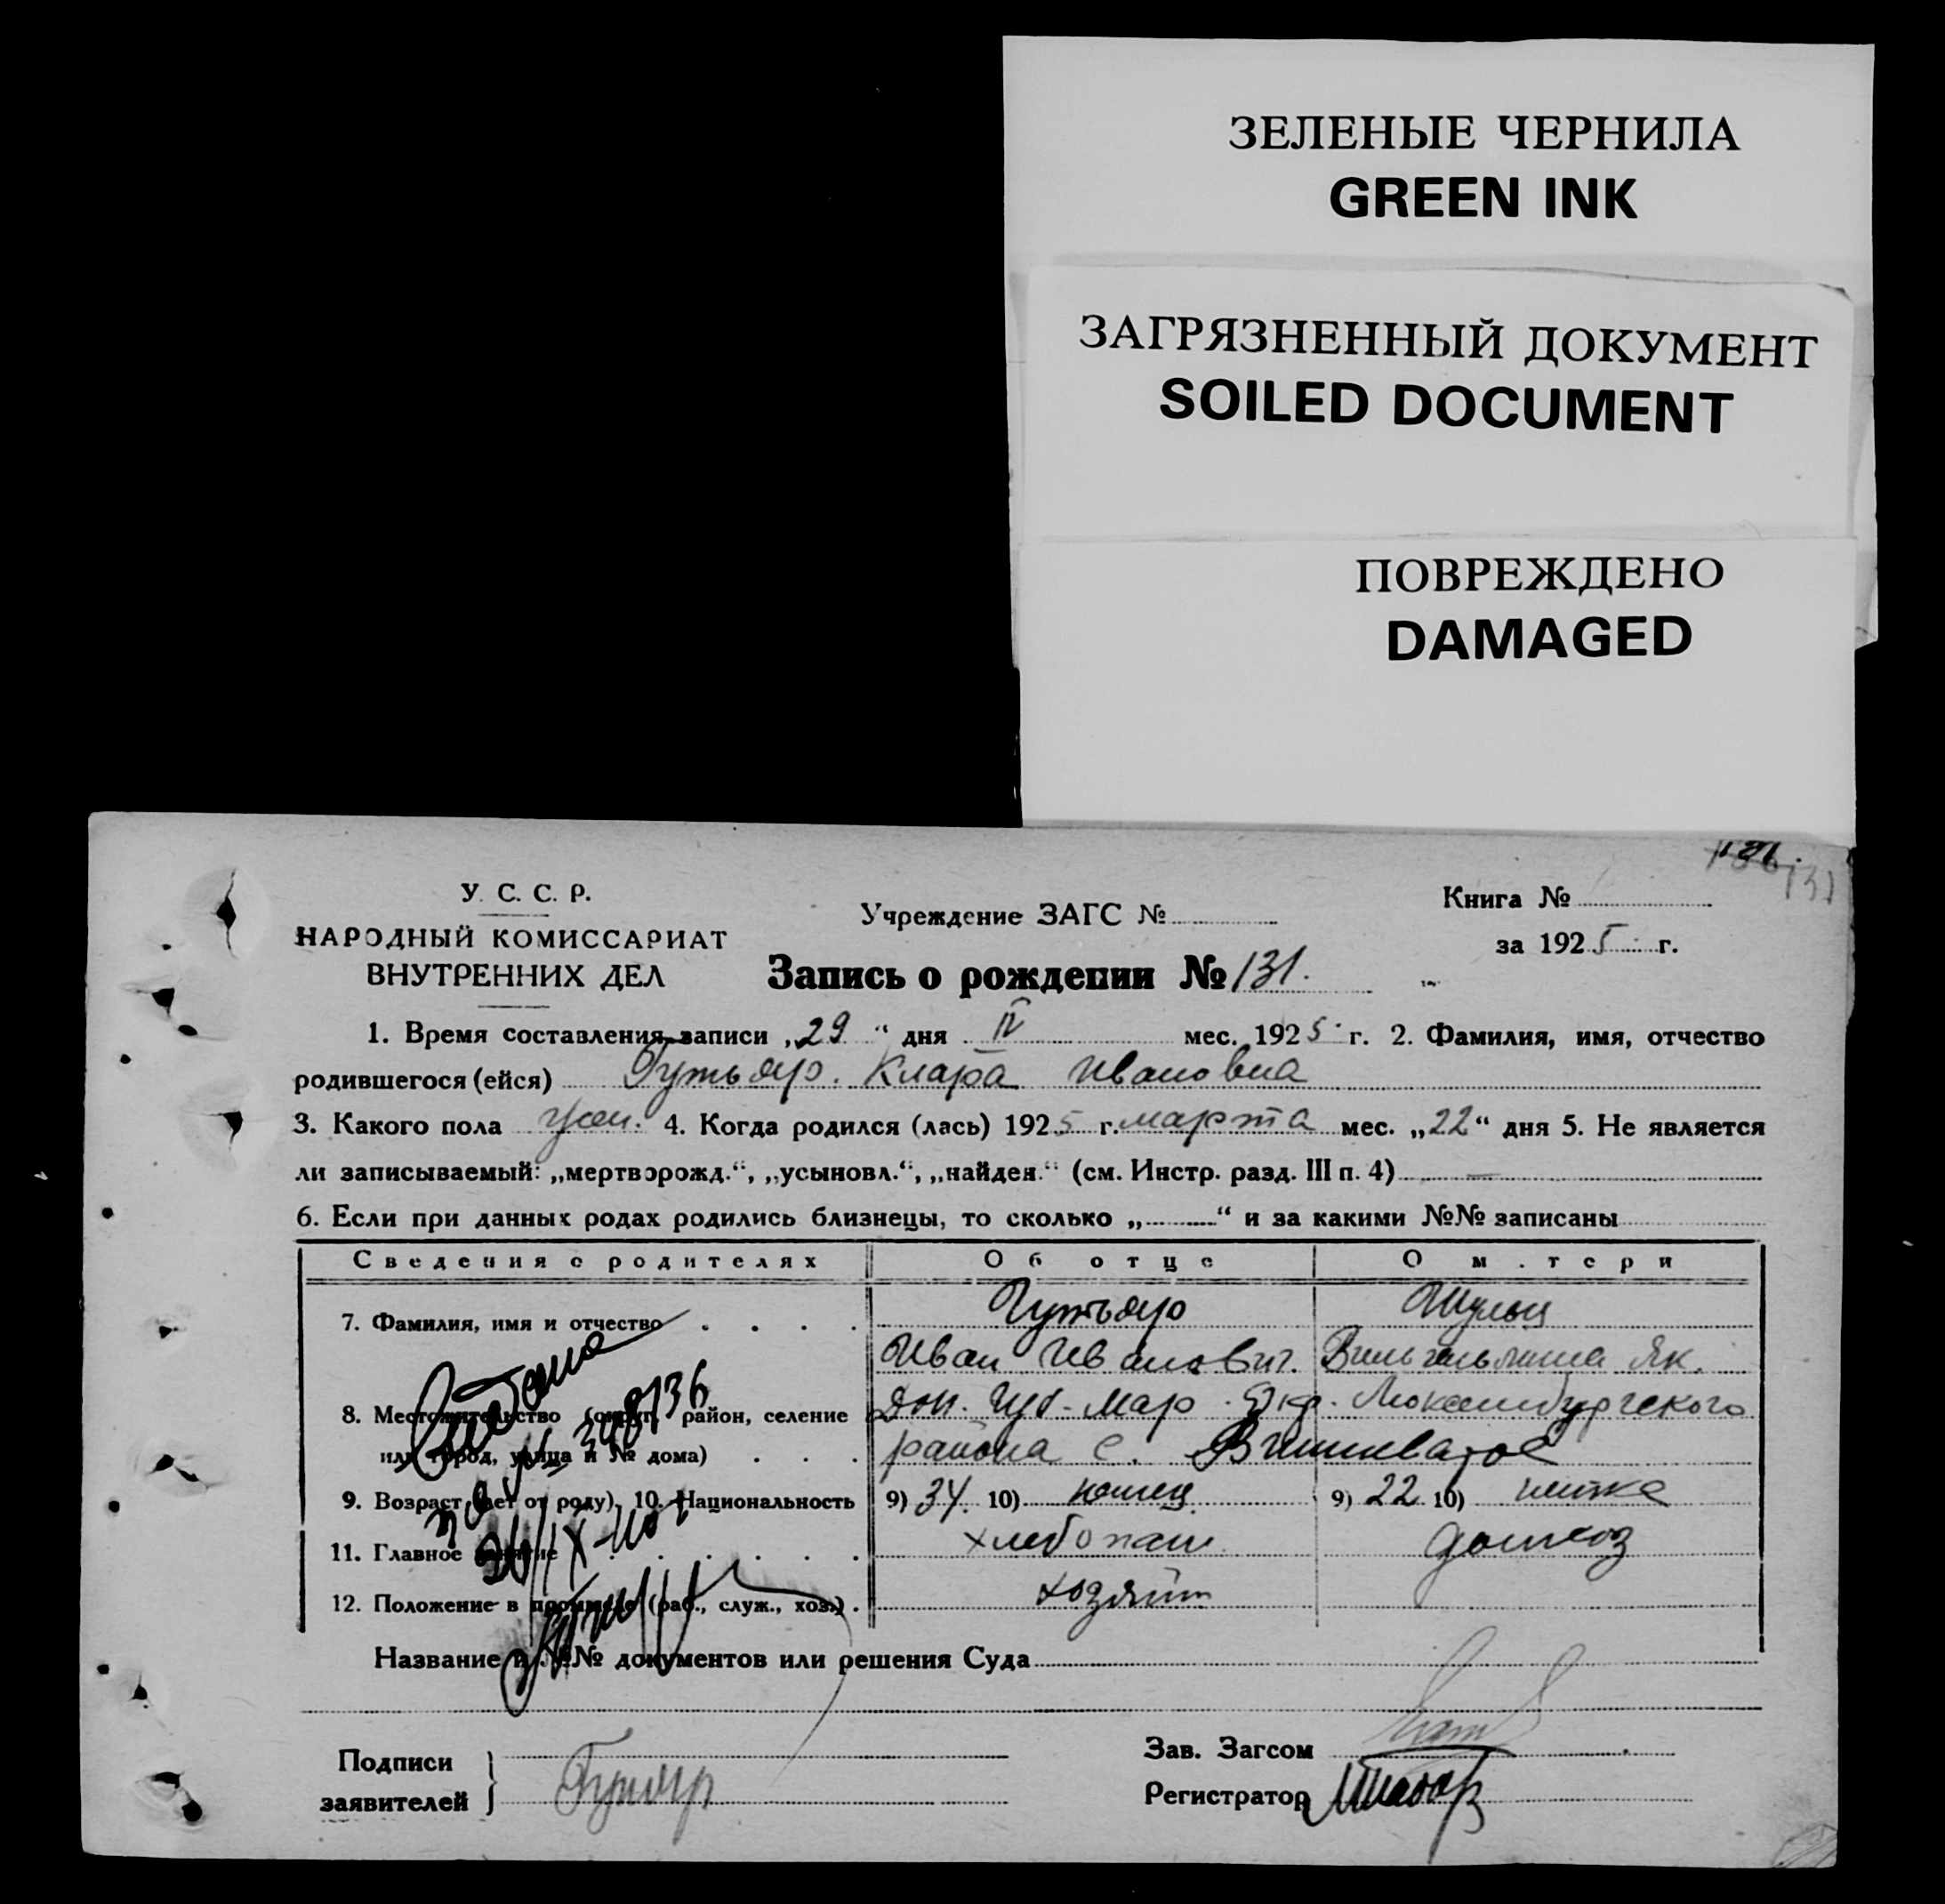 ЗЕЛЕНЫЕ ЧЕРНИЛА
GREEN INK
ЗАГРЯЗНЕННЫЙ ДОКУМЕНТ
SOILED DOCUMENT
ПОВРЕЖДЕНО
DAMAGED
У. С. С. Р.
НАРОДНЫЙ КОМИССАРИАТ
ВНУТРЕННИХ ДЕЛ
Учреждение ЗАГС №
Книга №
за 1925 г.
Запись о рождении № 131.
1. Время составления записи „29“ дня IV мес. 1925 г. 2. Фамилия, имя, отчество
родившегося (ейся) Гутьяр. Клара Ивановна
3. Какого пола жен. 4. Когда родился (лась) 1925 г. марта мес. „22“ дня 5. Не является
ли записываемый: „мертворожд.“, „усыновл.“, „найден.“ (см. Инстр. разд. III п. 4) —
6. Если при данных родах родились близнецы, то сколько „ “ и за какими №№ записаны
Сведения о родителях Об отце О м.тери
7. Фамилия, имя и отчество Гутьяр Шульц
Иван Иванович. Вильгельмина Як.
8. Местожительство (округ, район, селение Дон. Губ. Мар. Окр. Люксембургского
или город, улица и № дома) района с.
9. Возраст (лет от роду). 10. Национальность 9) 34. 10) немец 9) 22 10) немка
11. Главное занятие хлебопаш. домхоз
12. Положение в промысле (раб., служ., хоз.) хозяин
Название и №№ документов или решения Суда
Подписи
заявителей
Гутьяр
Зав. Загсом
Регистратор